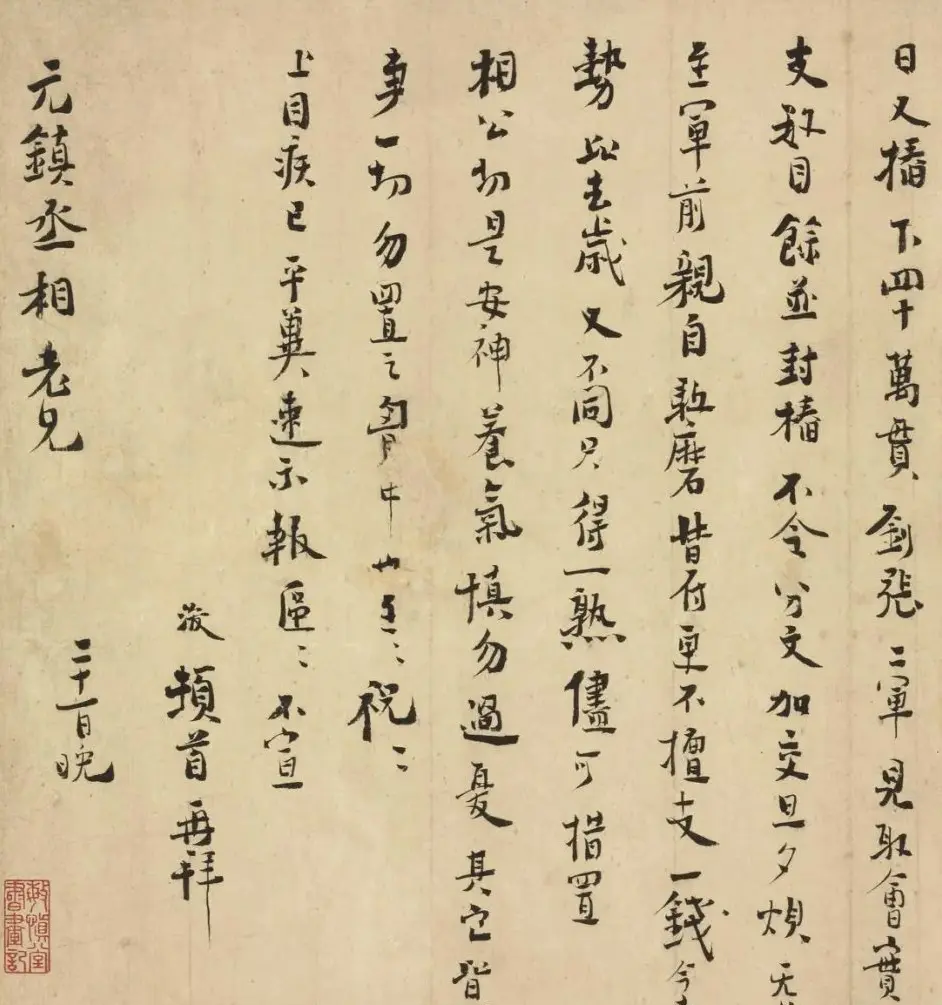 日又樁下四十萬貫劉張二軍見取會實
支數目餘並封樁不令分文加交旦夕煩
至軍前親自磨昔任更不擅支一錢今
勢比去歲又不同只得一熟儘可措置
相公切是安神養氣慎勿過憂其它皆
事一切勿置之胷中也至〻祝〻
上目疾已平冀速示報區〻不宣
浚頓首再拜
元鎮丞相老兄
二十一日晚